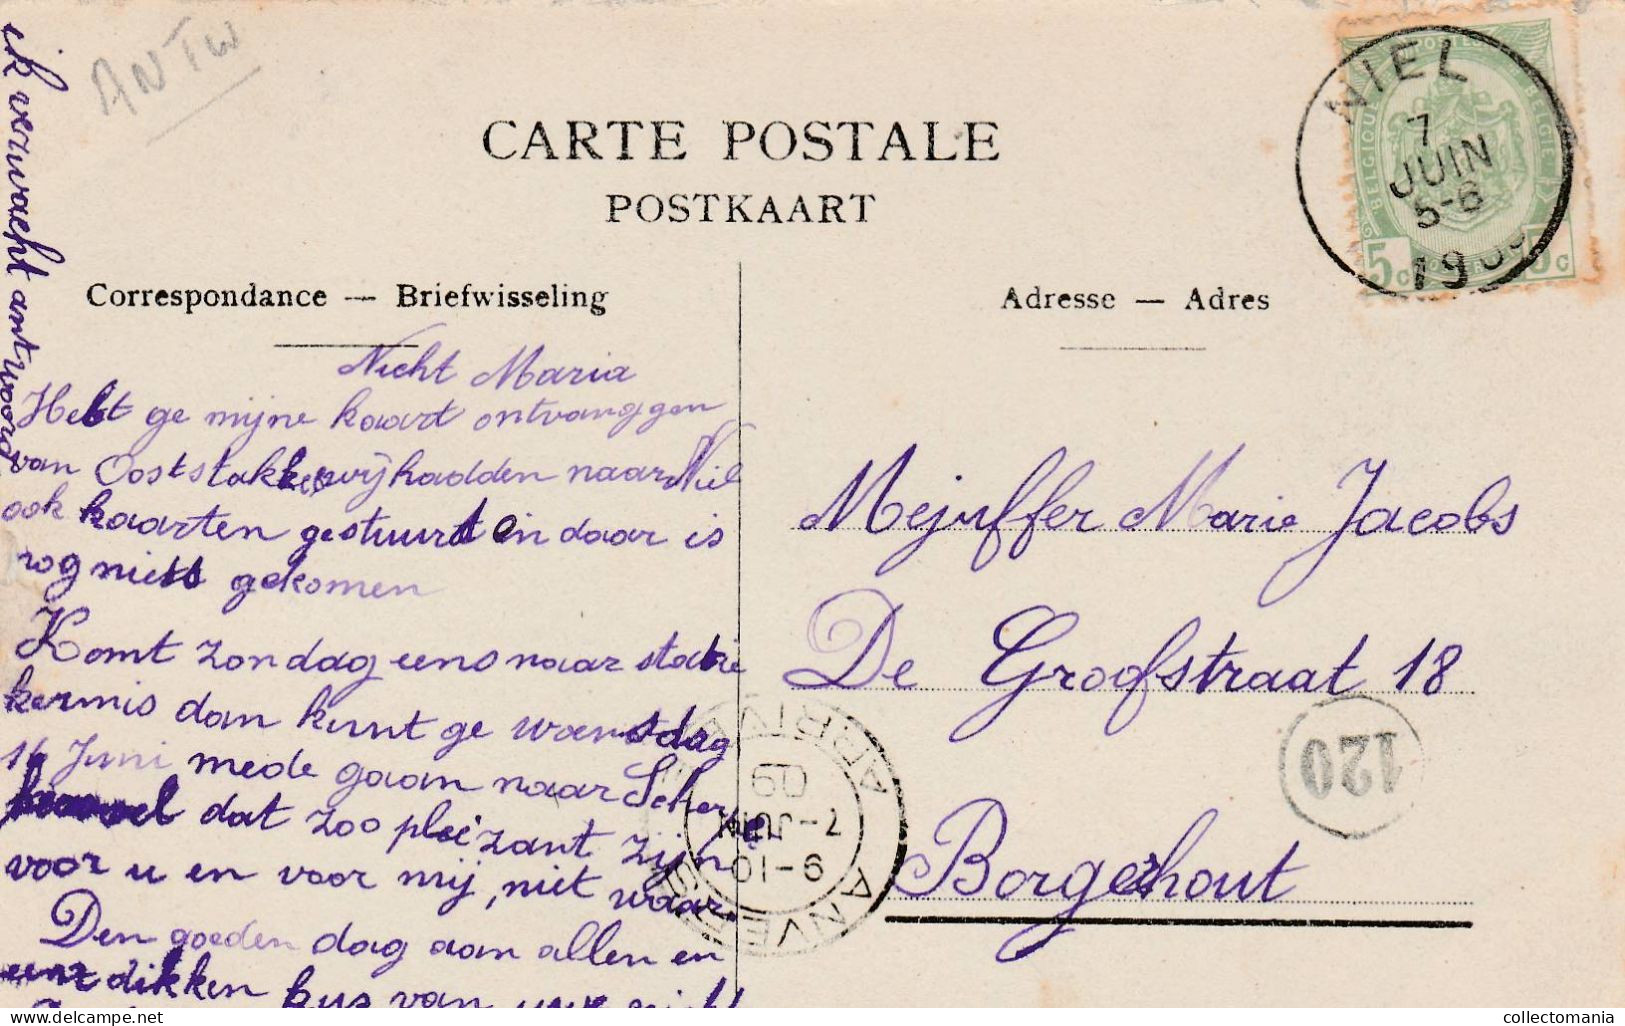 ANTW
CARTE POSTALE
POSTKAART
NIEL
7
JUIN
5-6
1909
POSTES
BELGIQUE
BELGIE
5c 5c
Correspondance — Briefwisseling
Adresse — Adres
Nicht Maria
Hebt ge mijne kaart ontvanggen
van Ooststakker wij hadden naar Niel
ook kaarten gestuurd en daar is
nog niets gekomen
Komt zondag eens naar statie
kermis dan kunt ge woensdag
16 Juni mede gaan naar Scher
heuvel dat zoo pleizant zijn
voor u en voor mij, niet waar
Den goeden dag aan allen en
eenz dikken kus van uwe nicht
ik verwacht antwoord
Mejuffer Marie Jacobs
De Groofstraat 18
Borgerhout
ARRIVE
09
7-JUIN
9-10
ANVERS
120
delcampe.net
collectomania